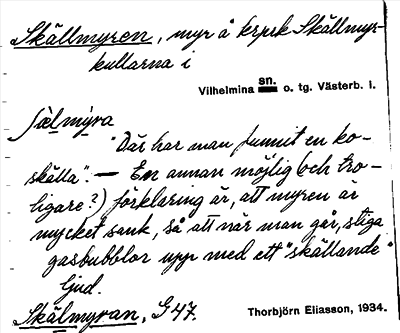 Skällmyren, myr å krprk Skällmyr-
kullarna i
Vilhelmina sn. o. tg. Västerb. l.
sælmỳra
"Där har man funnit en ko-
skälla". — En annan möjlig (och tro-
ligare?) förklaring är, att myren är
mycket sank, så att när man går, stiga
gasbubblor upp med ett "skällande"
ljud.
Skälmyran, G 47.
Thorbjörn Eliasson, 1934.